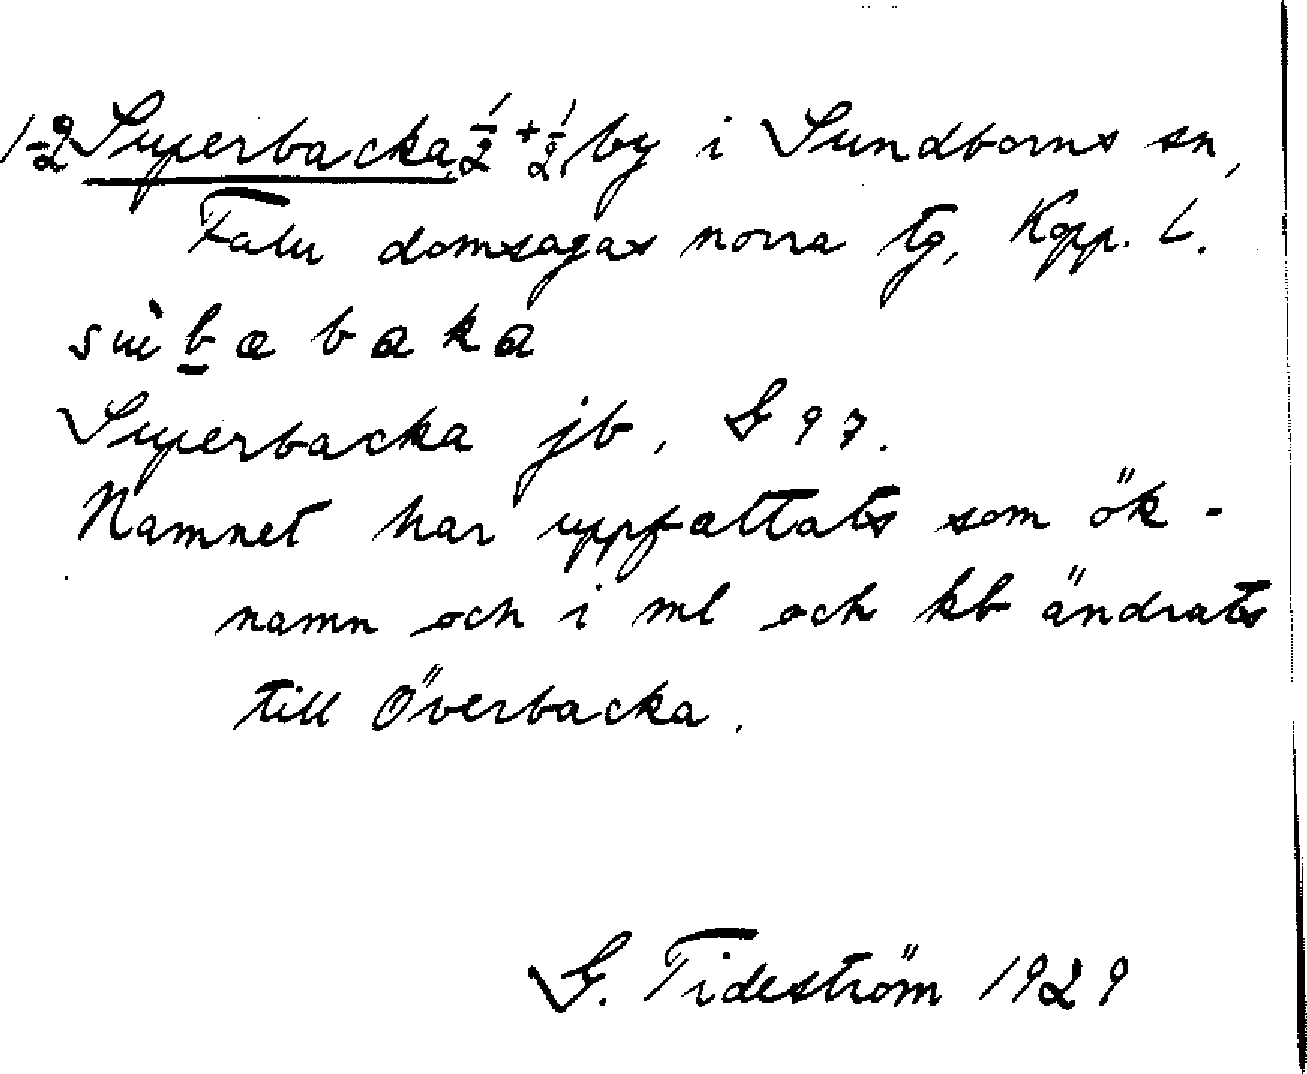 1-2 Superbacka 1/2 + 1/2, by i Sundborns sn,
Falu domsagas norra tg, Kopp. L.
Superbacka jb, G 97.
Namnet har uppfattats som ök-
namn och i ml och kb ändrats
till Överbacka.
G. Tideström 1929